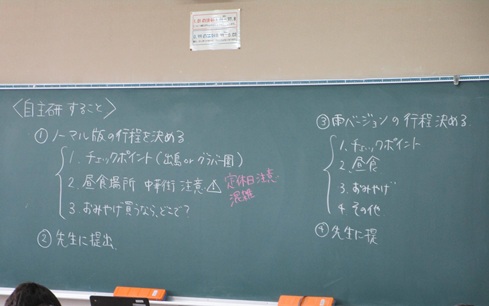 〈自主研 すること〉
① ノーマル版の行程を決める
1. チェックポイント(出島 or グラバー園)
2. 昼食場所 中華街 注意 ⚠ 定休日注意
混雑
3. おみやげ買うなら、どこで?
② 先生に提出
③ 雨バージョンの行程決める
1. チェックポイント
2. 昼食
3. おみやげ
4. その他
④ 先生に提